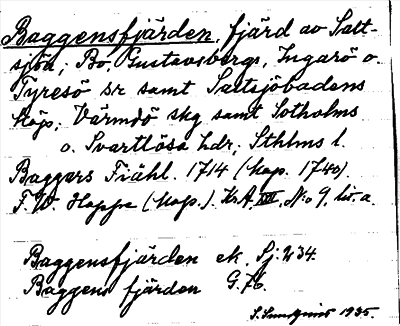 Baggensfjärden, fjärd av Salt-
sjön; Bo, Gustavsbergs, Ingarö o.
Tyresö snr samt Saltsjöbadens
köp; Värmdö skg samt Sotholms
o. Svartlösa hdr, Sthlms l.
Baggars Fiähl. 1714 (kop. 1740).
F. W. Hoppe (kop.). KrA, XIII, No 9, lit. a.
Baggensfjärden ek. Sj: 234.
Baggens fjärden G. 76.
1935.